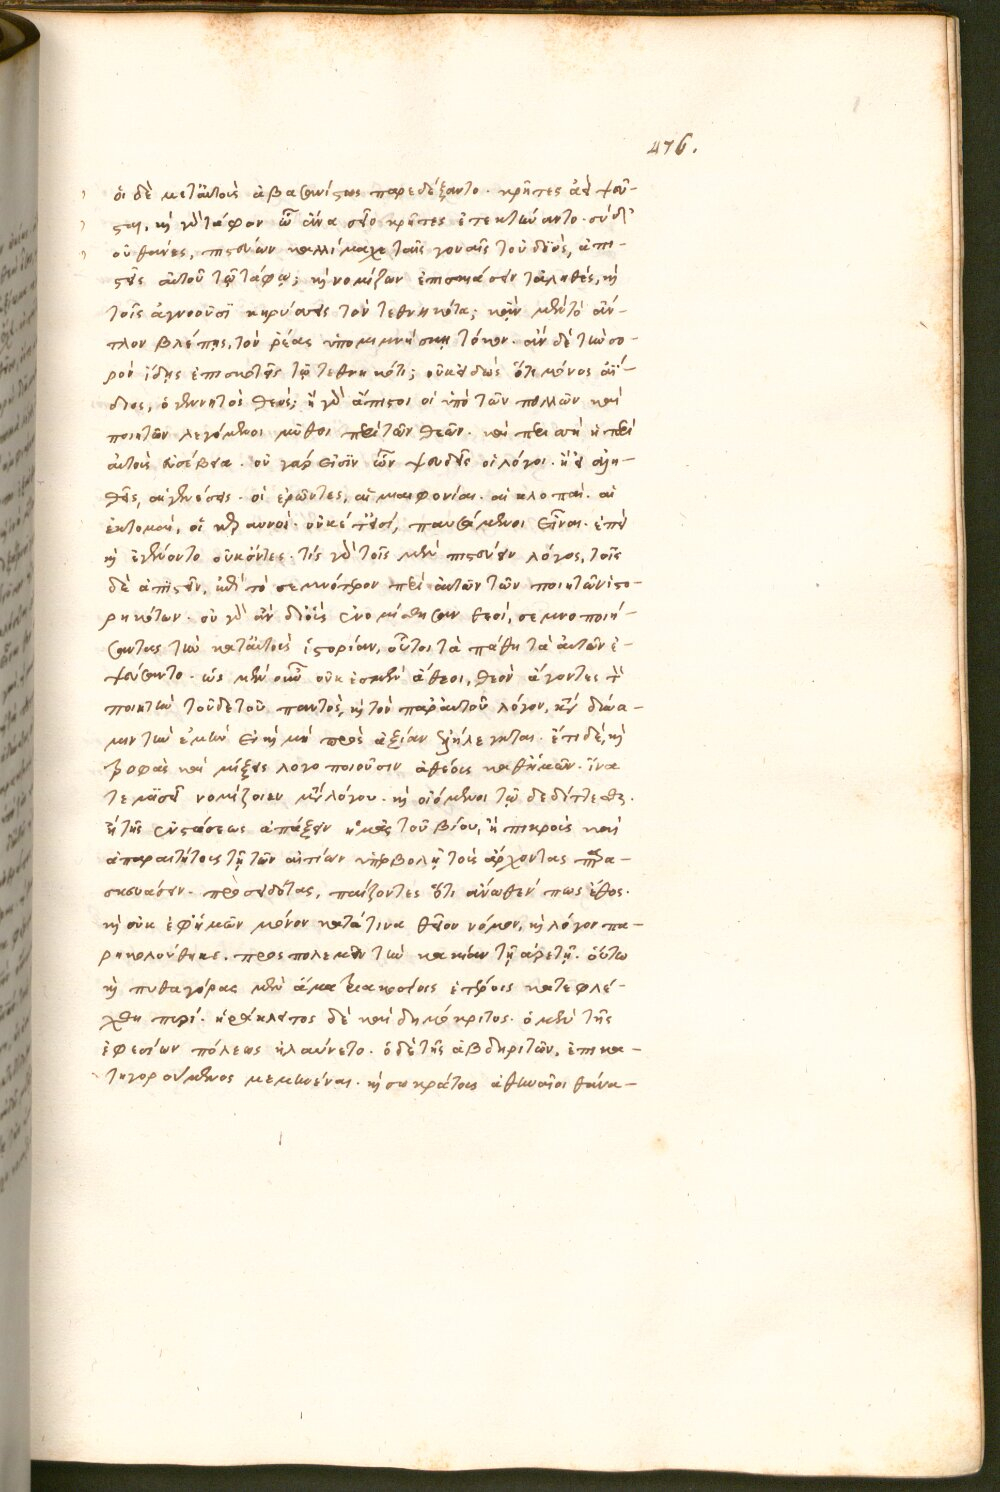 476.
οἱ δὲ μετ' αὐτοὺς ἀβασανίστως παρεδέξαντο. κρῆτες ἀεὶ ψεῦ-
σται, καὶ γὰρ τάφον ὦ ἄνα σεῖο κρῆτες ἐτεκτήναντο. σὺ δ'
οὐ θάνες, πιστεύων καλλίμαχε ταῖς γοναῖς τοῦ διὸς, ἀπι-
στεῖς αὐτοῦ τῷ τάφῳ; καὶ νομίζων ἐπισκιάσειν τἀληθὲς, καὶ
τοῖς ἀγνοοῦσι κηρύσσεις τὸν τεθνηκότα; κἂν μὲν τὸ ἄν-
τρον βλέπῃς, τὸν ῥέας ὑπομιμνήσκῃ τόκον. ἂν δὲ τὴν σο-
ρὸν ἴδῃς ἐπισκοτεῖς τῷ τεθνηκότι; οὐκ εἰδὼς ὅτι μόνος ἀΐ-
διος, ὁ γεννητὸς θεός; ἢ γὰρ ἄπιστοι οἱ ὑπὸ τῶν πολλῶν καὶ
ποιητῶν λεγόμενοι μῦθοι περὶ τῶν θεῶν. καὶ περισσὴ ἡ περὶ
αὐτοὺς εὐσέβεια. οὐ γάρ εἰσὶν ὧν ψευδεῖς οἱ λόγοι. ἢ εἰ ἀλη-
θεῖς, αἱ γενέσεις. οἱ ἔρωτες, αἱ μιαιφονίαι. αἱ κλοπαὶ. αἱ
ἐκτομαὶ, οἱ κεραυνοὶ. οὐκέτ' εἰσὶ, παυσάμενοι εἶναι. ἐπεὶ
καὶ ἐγένοντο οὐκ ὄντες. τίς γὰρ τοῖς μὲν πιστεύειν λόγος, τοῖς
δὲ ἀπιστεῖν, ἐπὶ τὸ σεμνότερον περὶ αὐτῶν τῶν ποιητῶν ἱστο-
ρηκότων. οὐ γὰρ ἂν δι' οὓς ἐνομίσθησαν θεοὶ, σεμνοποιή-
σαντας τὴν κατ' αὐτοὺς ἱστορίαν, οὗτοι τὰ πάθη τὰ αὐτῶν ἐ-
ψεύσαντο. ὡς μὲν οὖν οὐκ ἐσμὲν ἄθεοι, θεὸν ἄγοντες τὸν
ποιητὴν τοῦδε τοῦ παντὸς, καὶ τὸν παρ' αὐτοῦ λόγον, κατὰ δύνα-
μιν τὴν ἐμὴν εἰ καὶ μὴ πρὸς ἀξίαν ἐλήλεγκται. ἔτι δὲ, καὶ
τροφὰς καὶ μίξεις λογοποιοῦσιν ἀθέους καθ' ἡμῶν. ἵνα
τε μισεῖν νομίζοιεν μετὰ λόγου. καὶ οἰόμενοι τῷ δεδίττεσθαι.
ἢ τῆς ἐνστάσεως ἀπάξειν ἡμᾶς τοῦ βίου, ἢ πικροὺς καὶ
ἀπαραιτήτους τῇ τῶν αἰτίων ὑπερβολῇ τοὺς ἄρχοντας παρα-
σκευάσειν. πρὸς εἰδότας, παίζοντες ὅτι ἄνωθέν πως ἔθος.
καὶ οὐκ ἐφ' ἡμῶν μόνον κατά τινα θεῖον νόμον, καὶ λόγον πα-
ρηκολούθηκε. προσπολεμεῖν τὴν κακίαν τῇ ἀρετῇ. οὕτω
καὶ πυθαγόρας μὲν ἅμα τριακοσίοις ἑτέροις κατεφλέ-
χθη πυρί. ἡράκλειτος δὲ καὶ δημόκριτος. ὁ μὲν τῆς
ἐφεσίων πόλεως ἠλαύνετο. ὁ δὲ τῆς ἀβδηριτῶν, ἐπικα-
τηγορούμενος μεμηνέναι. καὶ σωκράτους ἀθηναῖοι θάνα-